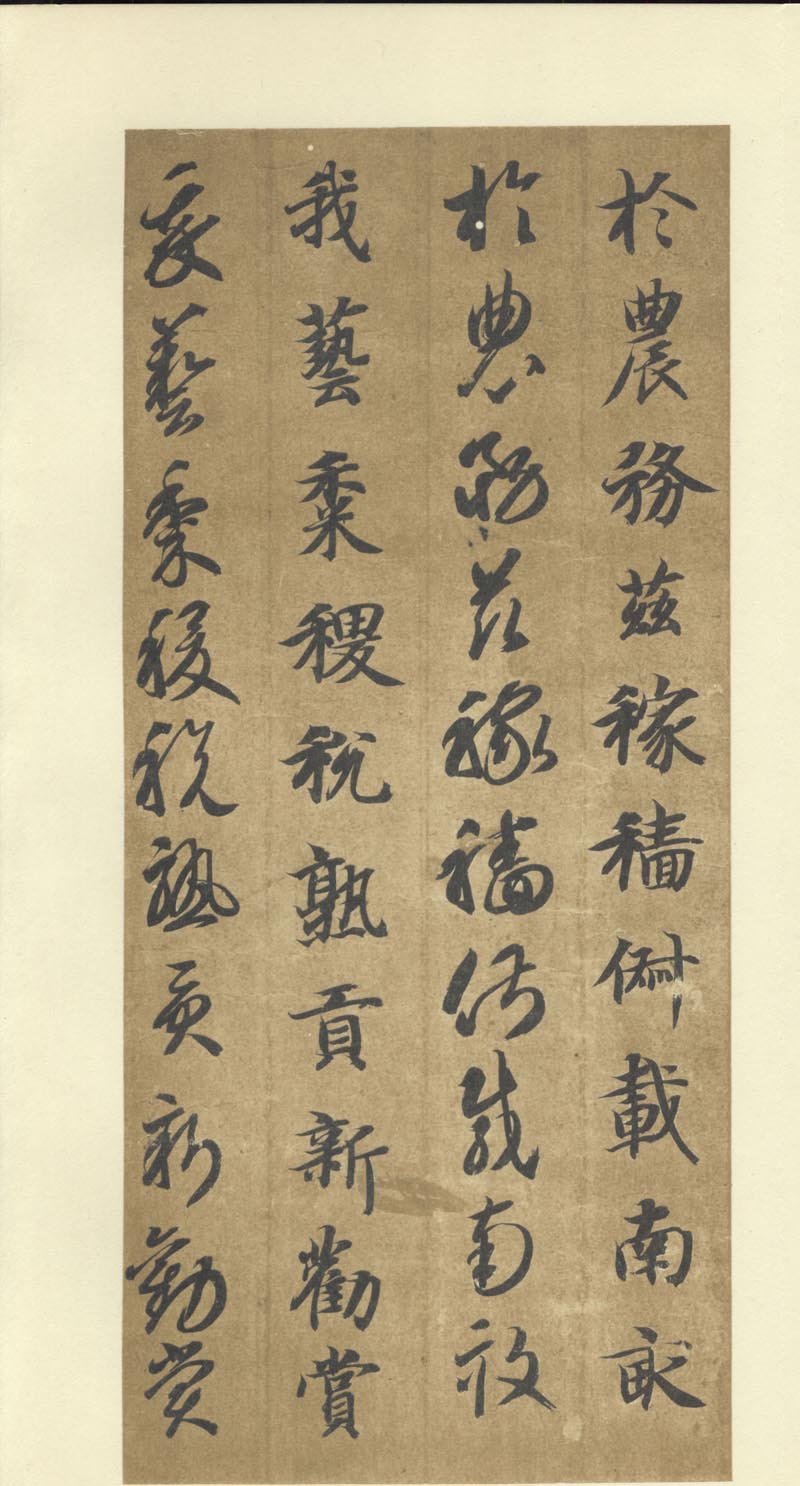 於農務茲稼穡俶載南畝
於農務茲稼穡俶載南畝
我藝黍稷稅熟貢新勸賞
我藝黍稷稅熟貢新勸賞